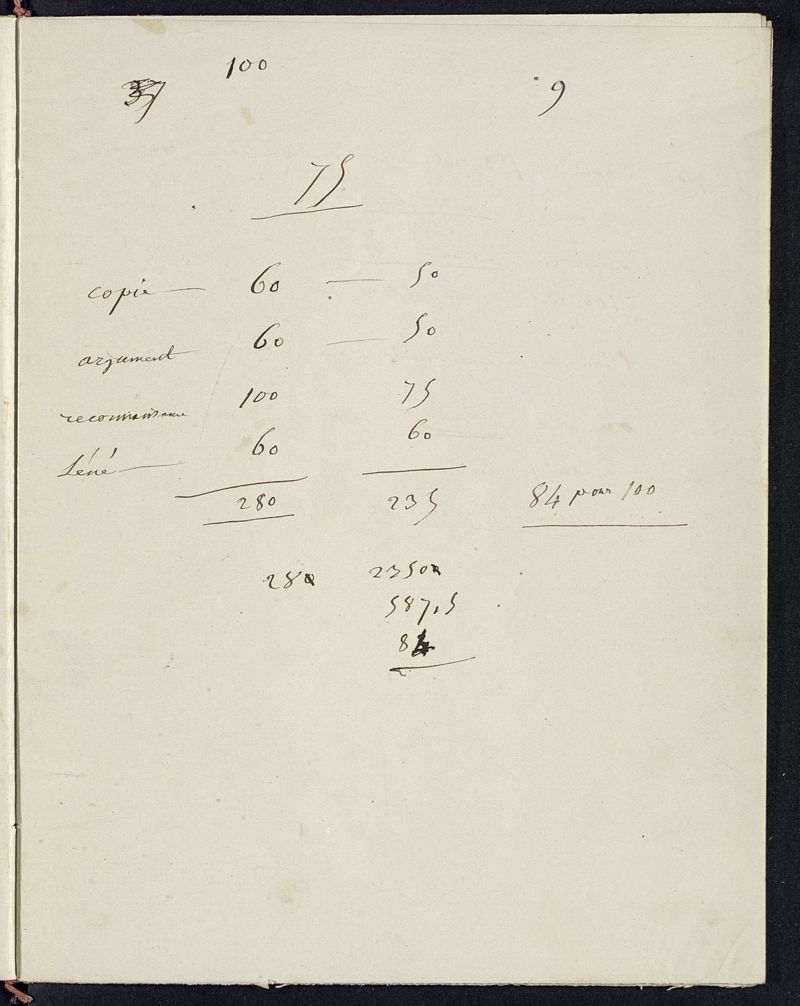 100
9
75
copie — 60 — 50
argument 60 — 50
reconnaissance 100 75
Léué — 60 60
280 235 84 pour 100
280 23500
587,5
84